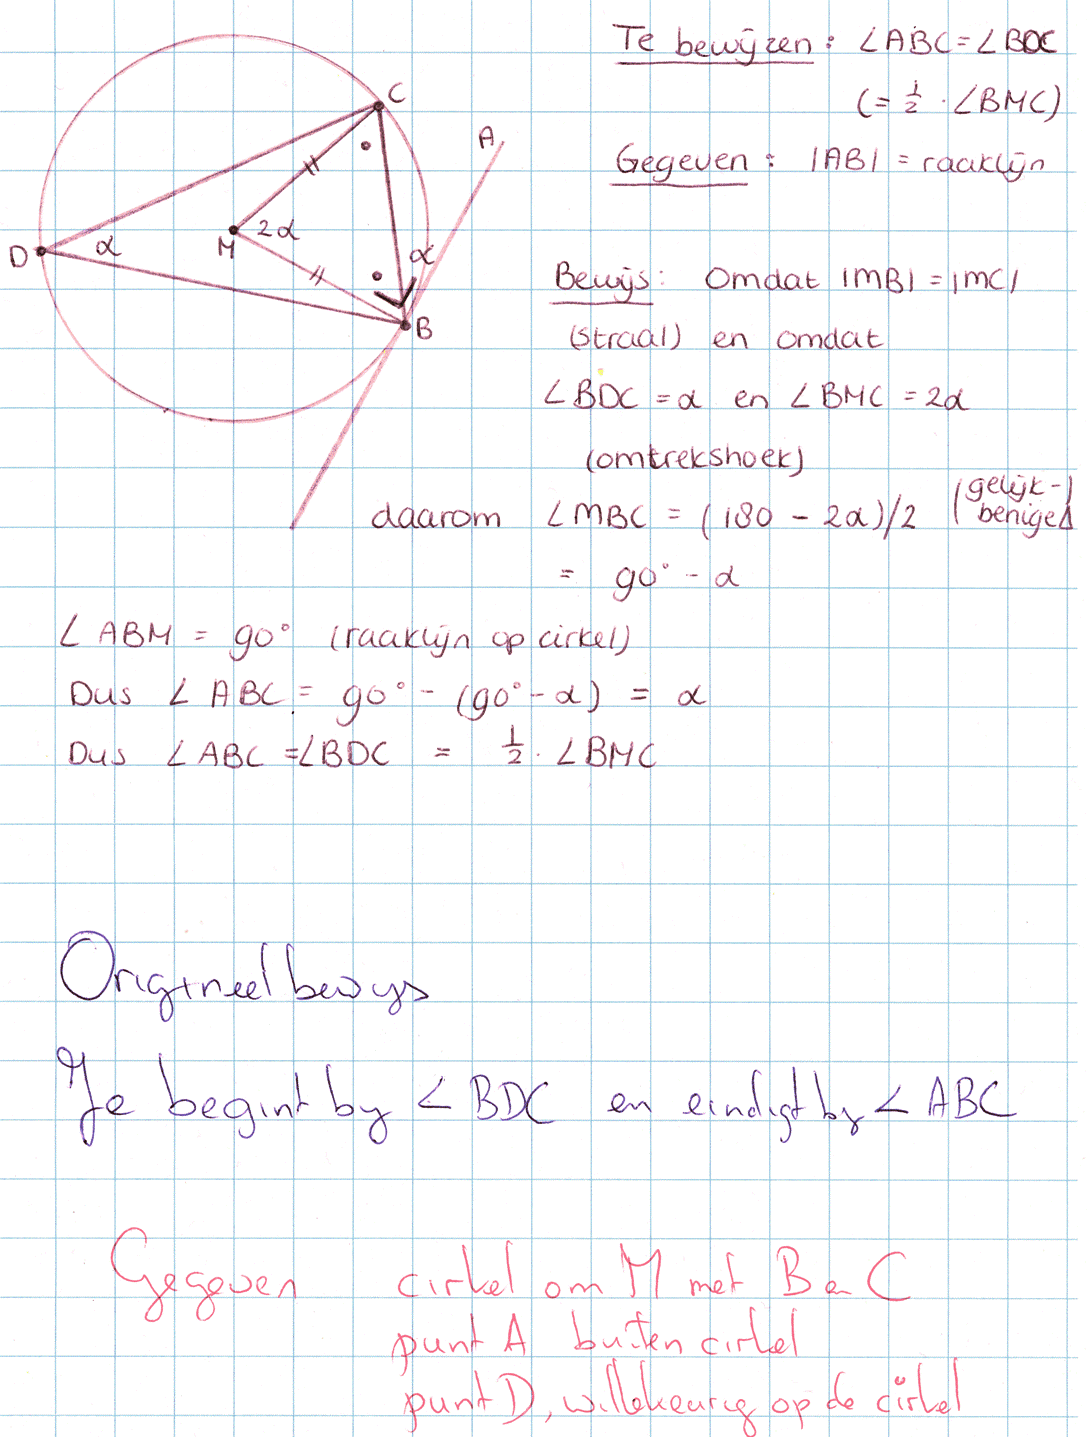 Te bewijzen: ∠ABC = ∠BDC
(= ½ · ∠BMC)
Gegeven: |AB| = raaklijn
C
A
D
α
M
2α
α
B
Bewijs: Omdat |MB| = |MC|
(straal) en omdat
∠BDC = α en ∠BMC = 2α
(omtrekshoek)
daarom ∠MBC = (180 - 2α)/2 (gelijk-benige Δ)
= 90° - α
∠ABM = 90° (raaklijn op cirkel)
Dus ∠ABC = 90° - (90° - α) = α
Dus ∠ABC = ∠BDC = ½ · ∠BMC
Origineel bewys
Je begint by ∠BDC en eindigt by ∠ABC
Gegeven cirkel om M met B en C
punt A buiten cirkel
punt D, willekeurig op de cirkel